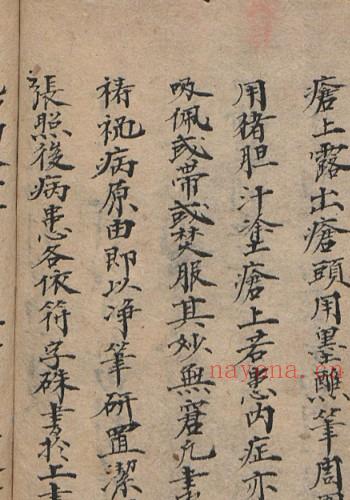 瘡上露出瘡頭用墨蘸筆周
用猪胆汁塗瘡上若患内症亦
吸佩或帶或焚服其妙無窮凢書
祷祝病原由即以净筆研置潔
張照後病患各依符字硃書於上書
nayona.cn